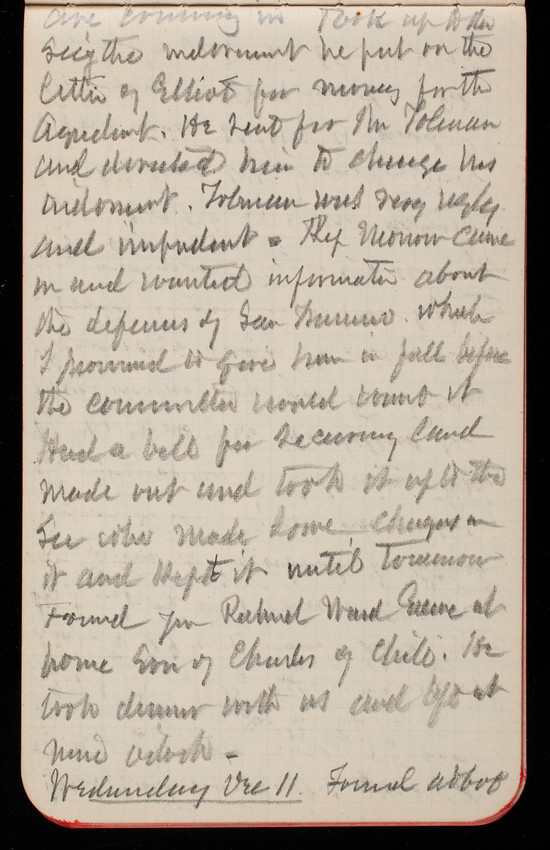 are coming in Took up to the
Secy the indorsment he put on the
letter of Elliot for money for the
Aqueduct. He sent for Mr Tolman
and directed him to change his
indorsment. Tolman was very ugly
and impudent - Rep Morrow came
in and wanted information about
the defenses of San Francisco. which
I promised to give him in full before
the committee would want it
Had a bill for securing land
made out and took it up to the
Sec who made some changes in
it and kept it until tomorrow
Found Ward at
home Son of Charles of Chili. He
took dinner with us and left at
nine oclock -
Wednesday Dec 11. Found about